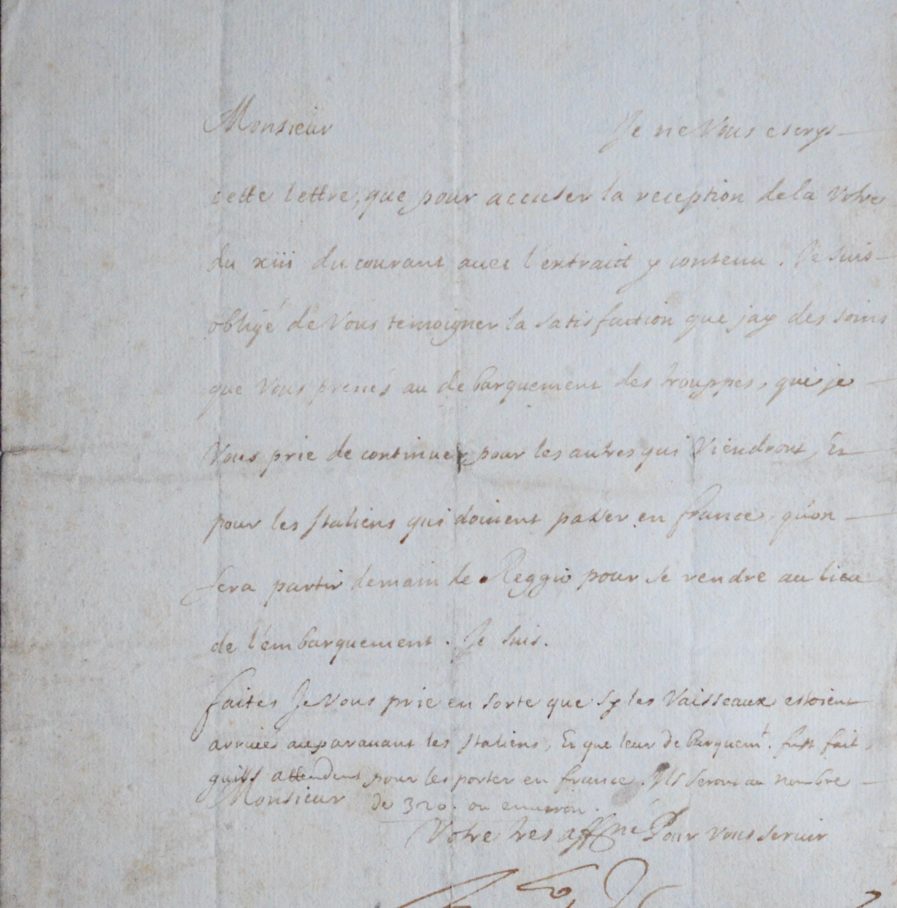 Monsieur Je ne Vous escrys
cette lettre, que pour accuser la reception de la Vostre
du xiii du courant avec l'extraict y contenu. Je suis
obligé de Vous temoigner la satisfaction que jay des soins
que Vous prenés au debarquement des trouppes, que je
Vous prie de continuer pour les autres qui Viendront, Et
pour les Italiens qui doivent passer en france, qu'on
fera partir demain de Reggio pour se rendre au lieu
de l'embarquement. Je suis.
faites Je Vous prie en sorte que sy les Vaisseaux estoient
arrivés auparavant les Italiens, Et que leur debarquemt. fust fait,
quils attendent pour les porter en france. Ils seront au nombre
de 320. ou environ.
Monsieur
Votre tres affné Pour vous servir